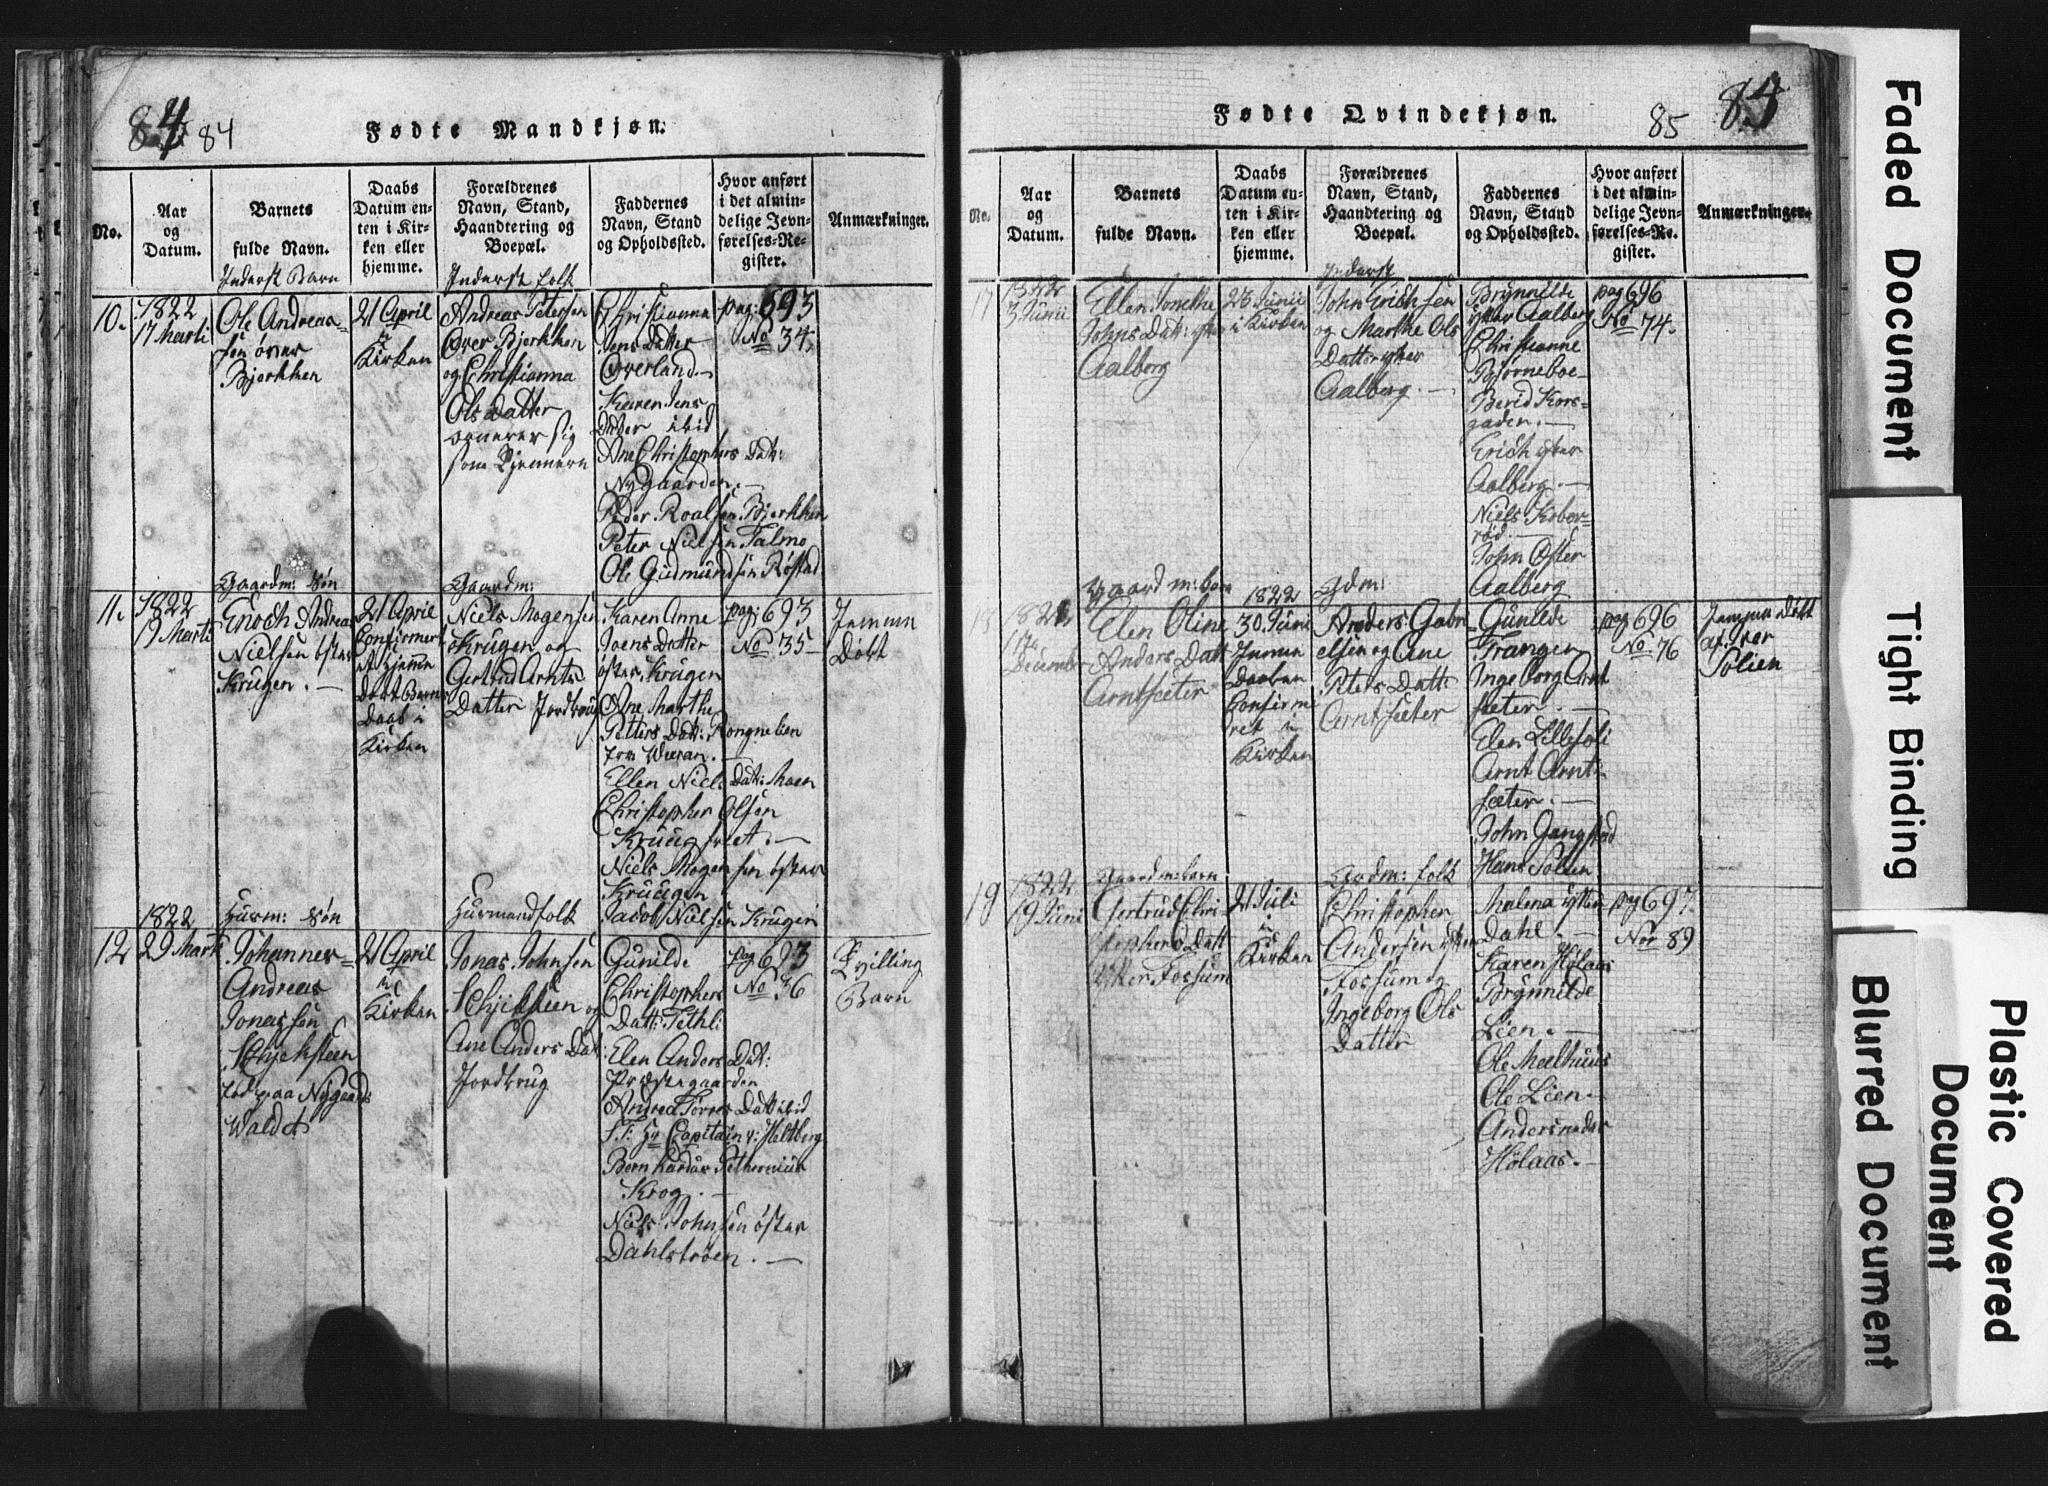 84 84
Fødte Mandkjøn.
No.
Aar
og
Datum.
Barnets
fulde Navn.
Daabs
Datum en-
ten i Kir-
ken eller
hjemme.
Forældrenes
Navn, Stand,
Haandtering og
Boepæl.
Faddernes
Navn, Stand
og Opholdssted.
Hvor anført
i det almin-
delige Jevn-
førelses-Re-
gister.
Anmærkninger.
Inderst Barn
Inderst folk
10.
1822
17 Marti
Ole Andreas-
sen øver
Bjerkken
21 April
i
Kirken
Andreas Petersen
Over Bjerkken
og Christianna
Ols Datter
som Tjenere
Christianna
Jens Datter
Overland.
Karen Jens
Datter ibid
Ane Christophers Dat:
Nygaarden.
Peder Roalsen Bjerkken
Peter Nielsen Talmo
Ole Gudmundsen Røstad
pag: 693
No 34.
Gaardm: Søn
Gaardm:
11.
1822
19 Marti
Enoch Andreas
Nielsen øster
Krugen.
21 April
Confirmert
Daab i
Kirken
Niels Mogensen
Krugen og
Gertrud Arnts
Datter Jordbrug
Karen Anne
Joens Datter
øster Krugen
Ane Marthe
Petters Dat: Rongnelien
fra Wæran.
Ellen Niels Dat: Moen
Christopher Olsen
Niels Mogensen øster
Kruugen
Jacob Nielsen Krugen
pag: 693
No 35
Jemmn
Døbt
Huusm: Søn
Huusmandfolk
12
1822
29 Marti
Johannes
Andreas
Jonassen
Schjefsteen
fød paa Nygaards
Waldet
21 April
i
Kirken
Jonas Johnsen
Schjefsteen og
Ane Anders Dat:
Jordbrug
Gunilde
Christophers
Datt: Fethli
Elen Anders Dat:
Præstegaarden
Andrea Tørres Datt ibid
S.T. Hr Capitain v: Heltberg
Bernhardus Pethernius
Krog.
Niels Johnsen øster
Dahlstrøen.
pag 693
No 36
Tvilling
Barn
Fødte Qvindekjøn.
85 85
No.
Aar
og
Datum.
Barnets
fulde Navn.
Daabs
Datum en-
ten i Kir-
ken eller
hjemme.
Forældrenes
Navn, Stand,
Haandtering og
Boepæl.
Faddernes
Navn, Stand
og Opholdssted.
Hvor anført
i det almin-
delige Jevn-
førelses-Re-
gister.
Anmærkninger.
Inderst
17
1822
3 Junii
Ellen Jonethe
Johns Dat: yter
Aalberg
23 Junii
i Kirken
John Erichsen
og Marthe Ols
Datter yter
Aalberg.
Brynnilde
yter Aalberg
Christianne
Bjørneboe
Berid Kors-
gaden.
Erich yter
Aalberg.
Niels Kober-
rød
John Øster
Aalberg
pag 696
No 74.
Gaardm: barn
Gdm:
1821
17de
December
Elen Oline
Anders Datt
Arntsæter
1822
30 Juni
Hjemme
Døben
Confirme
ret i
Kirken
Anders Gabri
elsen og Ane
Peters Datt:
Arntsæter
Gunilde
Trangen
Ingeborg Arnt
sæter.
Elen Lillesoli
Arnt Arnt-
sæter.
John Gangstad
Hans Solien
pag 696
No 76
Hjemme Døbt
af
Solien
Gaardm: barn
Gaardm: folk
19
1822
19 Juni
Gertrud Chri
stophers Datt
Ytter Fossum
21 Juli
i
Kirken
Christopher
Andersen yter
Fossum og
Ingeborg Ols
Datter
Malena yttre
Dahl.
Karen Hølaas
Brynnilde
Lien.
Ole Melhuus
Ole Lien
Anders neder
Hølaas.
pag 697
No 89
Faded Document
Tight Binding
Blurred Document
Plastic Covered
Document